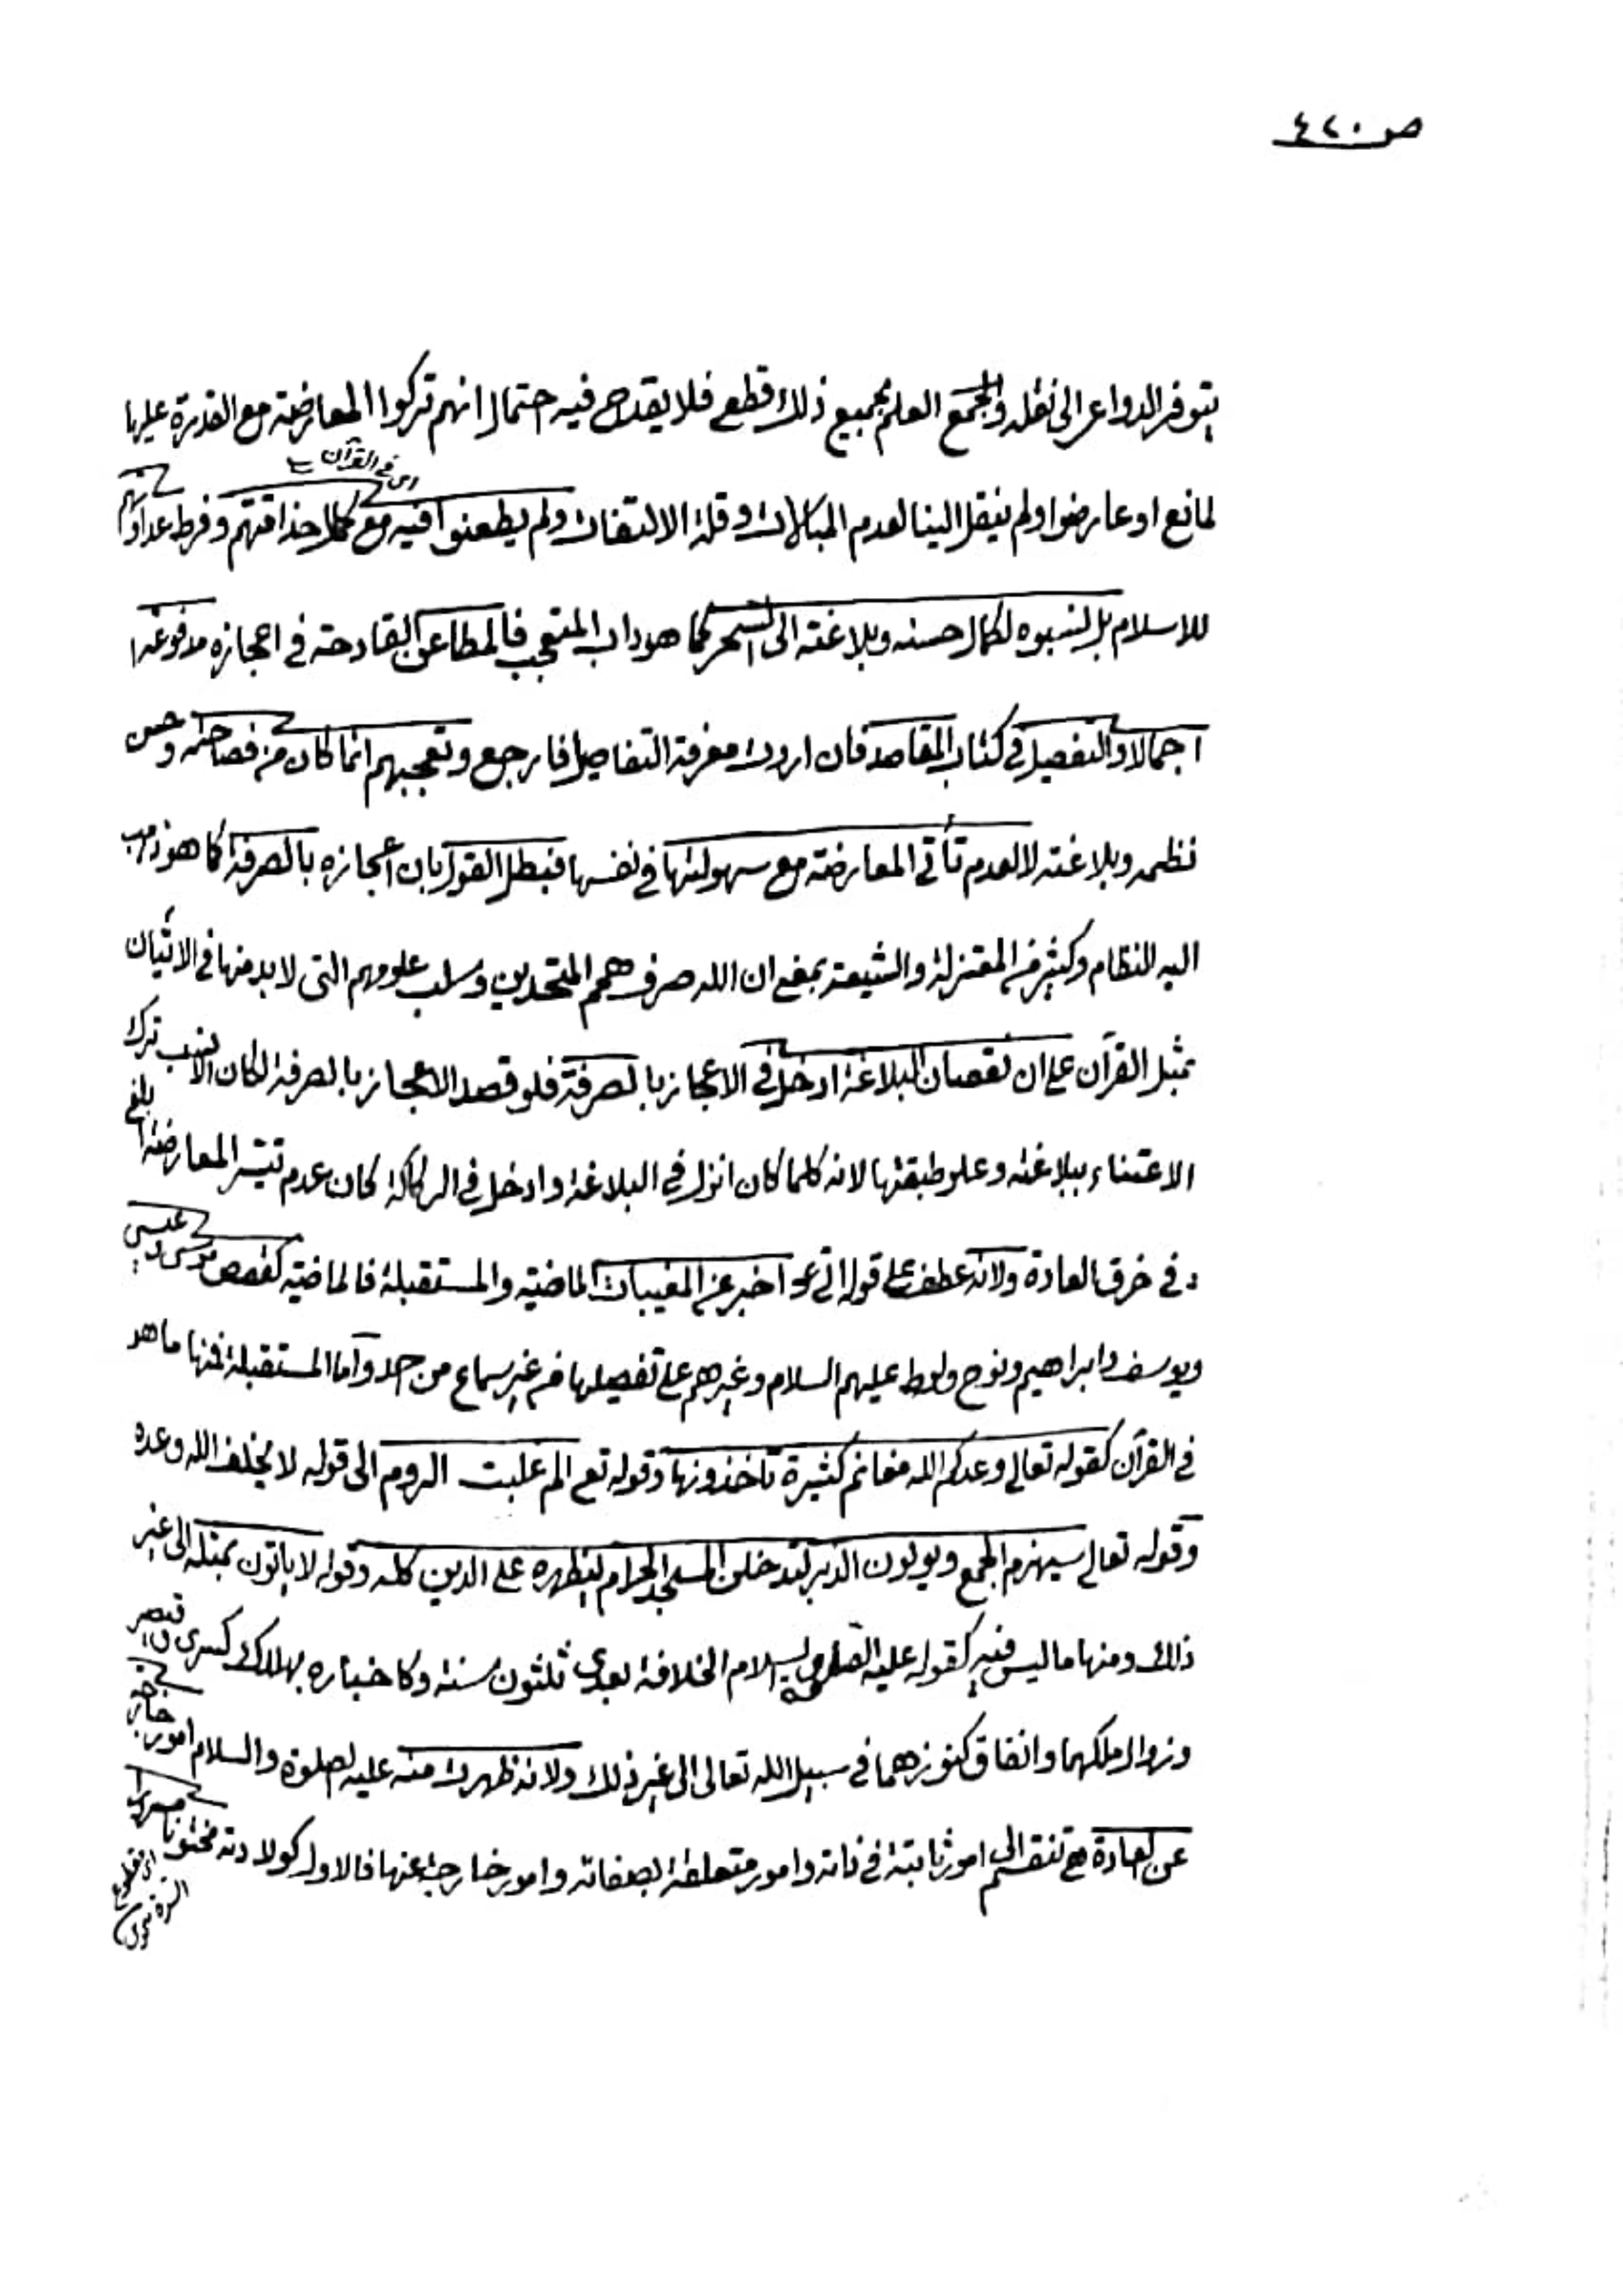 ص ٤٢٠
يتوفر الدواعى الى نقله والجمع العلم بجميع ذلك قطع فلا يقدح فيه احتمال انهم تركوا المعارضة مع القدرة عليها
اى فى القرآن
لمانع او عارضوا ولم ينقل الينا لعدم المبالات وقلة الالتفات ولم يطعنوا فيه مع كمال حذاقتهم وفرط عداوتهم
للاسلام بل نسبوه لكمال حسنه وبلاغته الى السحر كما هو داب المتعجب فالمطاعن القادحة فى اعجازه مدفوعة
اجمالا والتفصيل فى كتاب المقاصد فان اردت معرفة التفاصيل فارجع وتعجبهم انما كان من فصاحته وحسن
نظمه وبلاغته لا لعدم تأتى المعارضة مع سهولتها فى نفسها فبطل القول بان اعجازه بالصرفة كما هو ذهب
اليه النظام وكثير من المعتزلة والشيعة بمعنى ان الله صرف همم المتحدين وسلب علومهم التى لا بد منها فى الاتيان
بمثل القرآن على ان نقصان البلاغة ادخل فى الاعجاز بالصرفة فلو قصد الاعجاز بالصرفة لكان الانسب ترك
الاعتناء ببلاغته وعلو طبقتها لانه كلما كان انزل فى البلاغة وادخل فى الركاكة كان عدم تيسر المعارضة ابلغ
فى خرق العادة ولانه عطف على قوله اخبر عن المغيبات الماضية والمستقبلة فالماضية كقصص موسى وعيسى
ويوسف وابراهيم ونوح ولوط عليهم السلام وغيرهم على تفصيلها من غير سماع من احد واما المستقبلة فمنها ما هو
فى القرآن كقوله تعالى وعدكم الله مغانم كثيرة تاخذونها وقوله تع الم غلبت الروم الى قوله لا يخلف الله وعده
وقوله تعالى سيهزم الجمع ويولون الدبر لتدخلن المسجد الحرام ليظهره على الدين كله وقوله لا ياتون بمثله الى غير
ذلك ومنها ما ليس فيه كقوله عليه الصلوة والسلام الخلافة بعدى ثلثون سنة وكاخباره بهلاك كسرى وقيصر
وزوال ملكهما وانفاق كنوزهما فى سبيل الله تعالى الى غير ذلك ولانه ظهرت منه عليه الصلوة والسلام امور خارجة
عن العادة هى تنقسم الى امور ثابتة فى ذاته وامور متعلقة بصفاته وامور خارجة عنها فالاول كولادته مختونا مسرورا